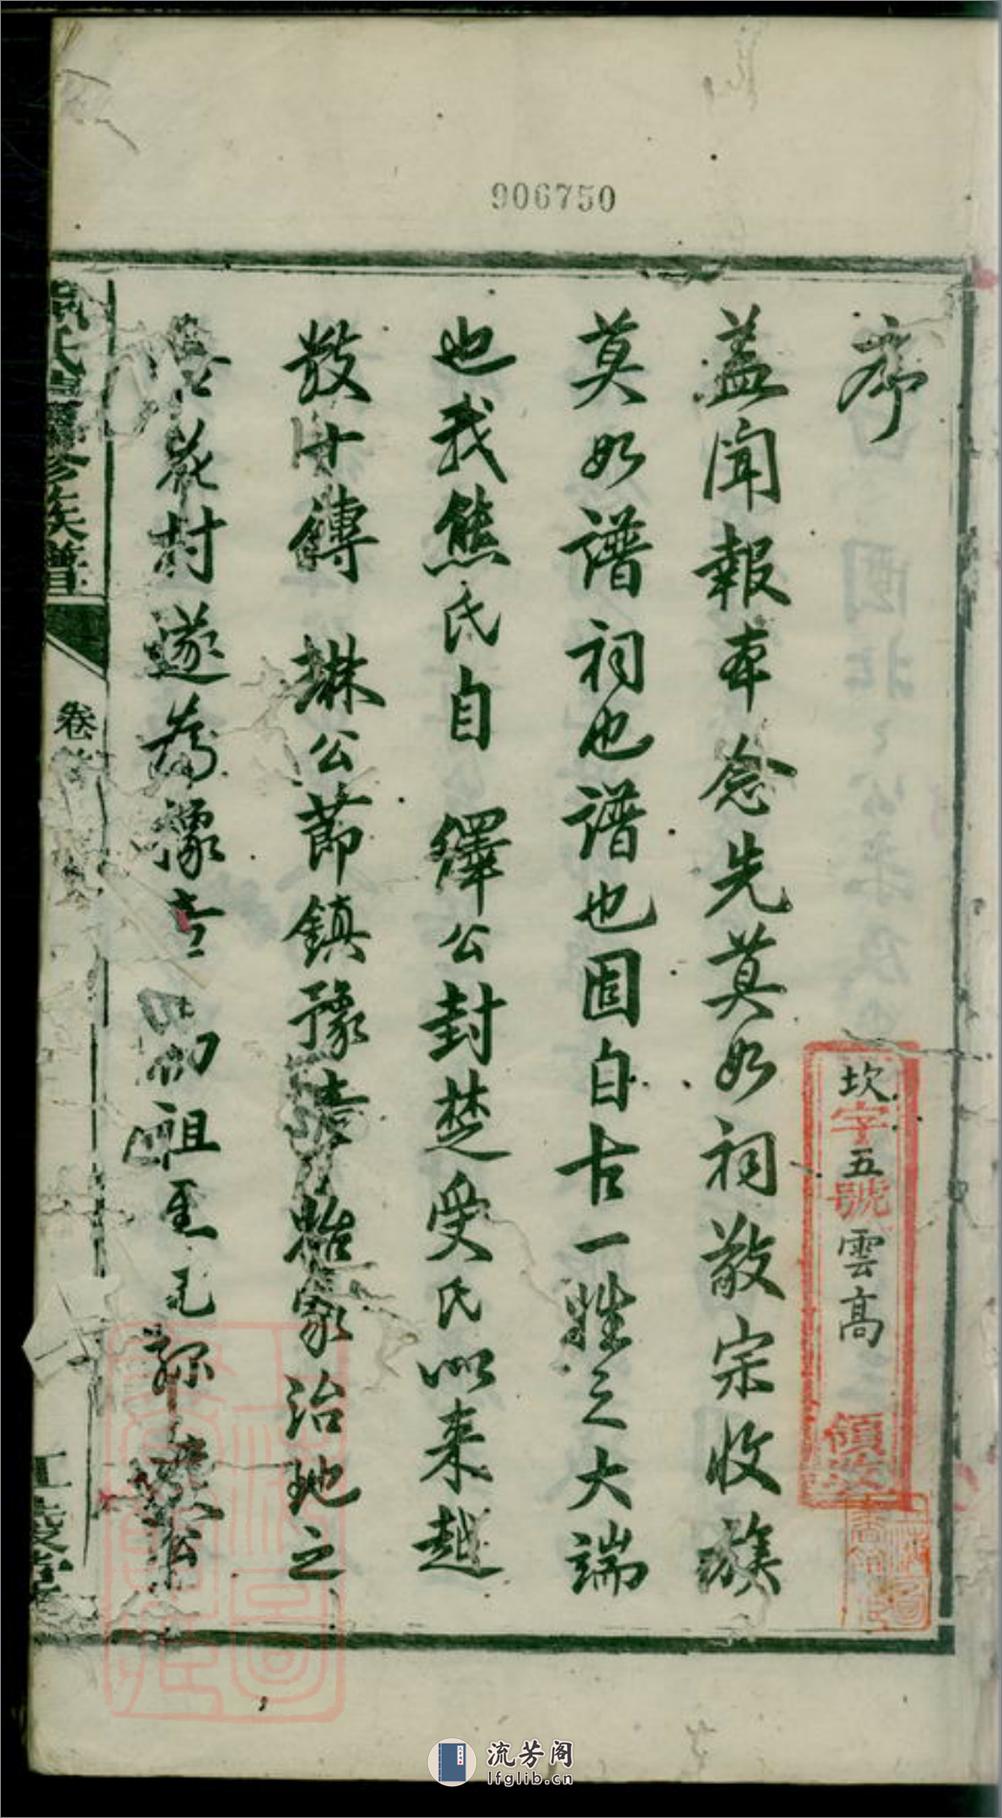 906750
序
蓋聞報本念先莫如祠敬宗收族
莫如譜祠也譜也固自古一姓之大端
也我熊氏自 繹公封楚受氏以来越
数十傳 琳公節鎮豫章貽家治地之
花村遂為豫章 初祖至 祢 公
坎字五號雲高 領
氏 修族譜
卷首
江陵堂
流芳阁
lfglib.cn